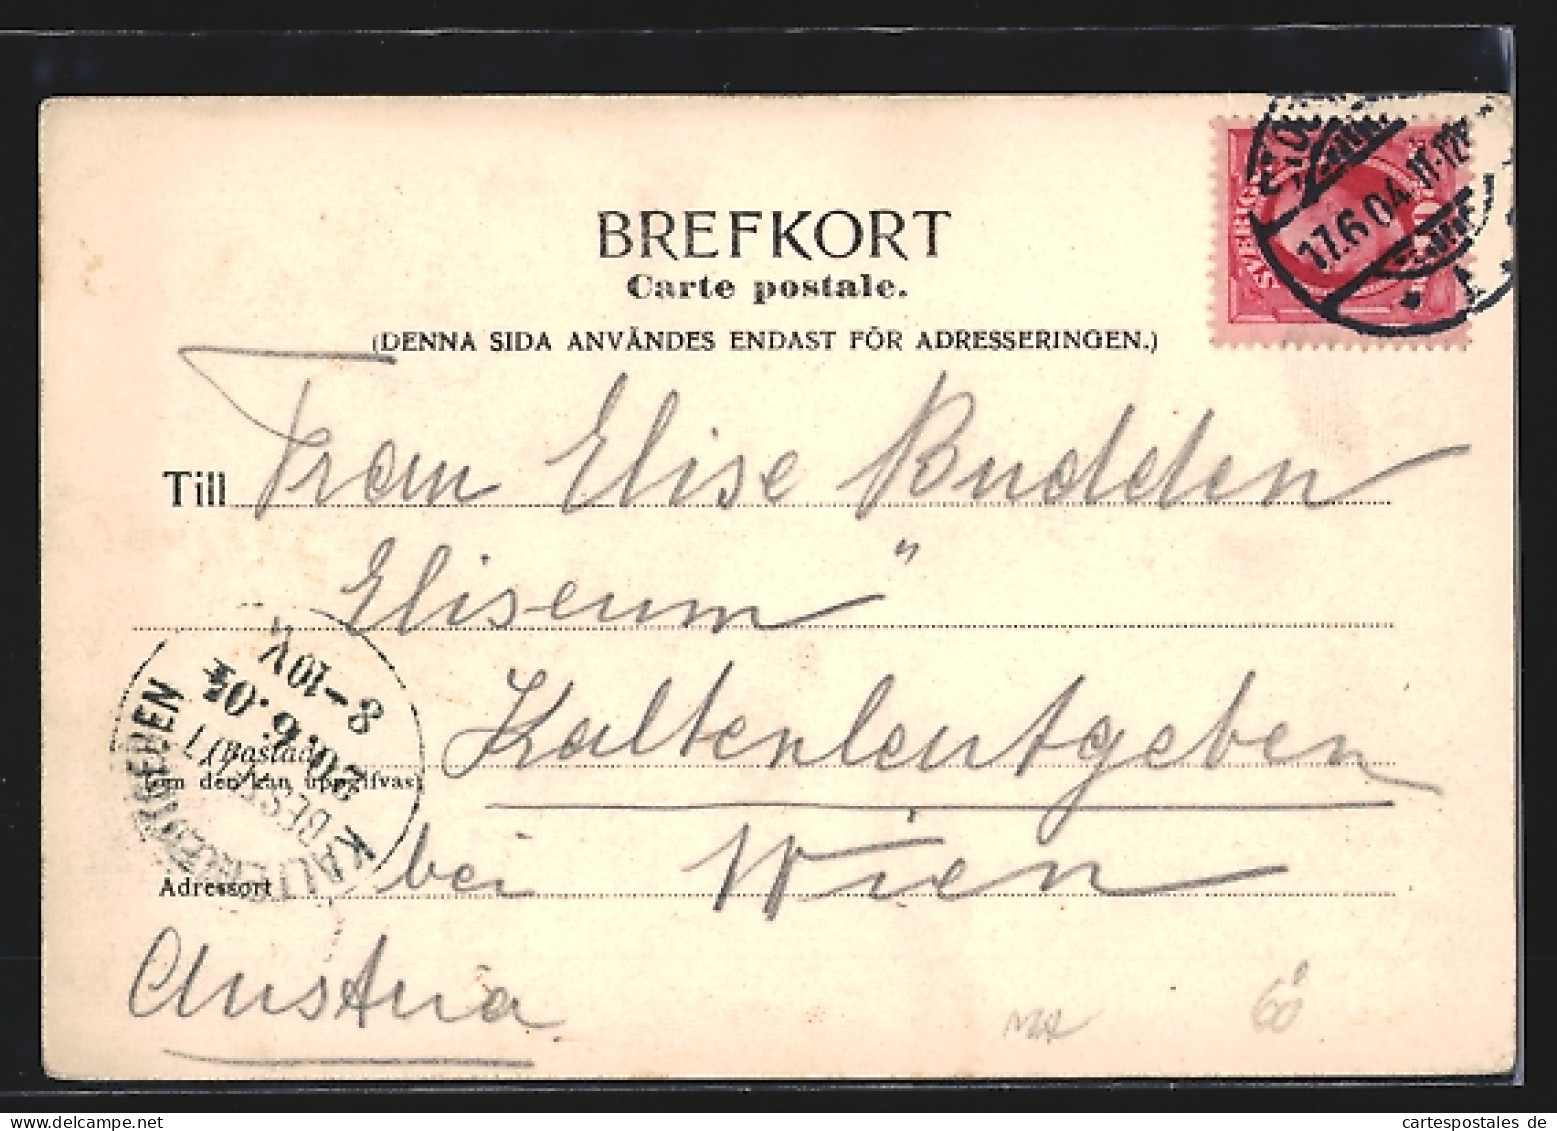 BREFKORT
Carte postale.
(DENNA SIDA ANVÄNDES ENDAST FÖR ADRESSERINGEN.)
SVERIGE
17.6.04 11-12F
Till Frau Elise Budden
Eliseum"
Kaltenleutgeben
(Bostad
om den kan uppgifvas)
KALTENLEUTGEBEN
BEST
20.6.04
8-10V
Adressort bei Wien
Austria
60
cartespostales de